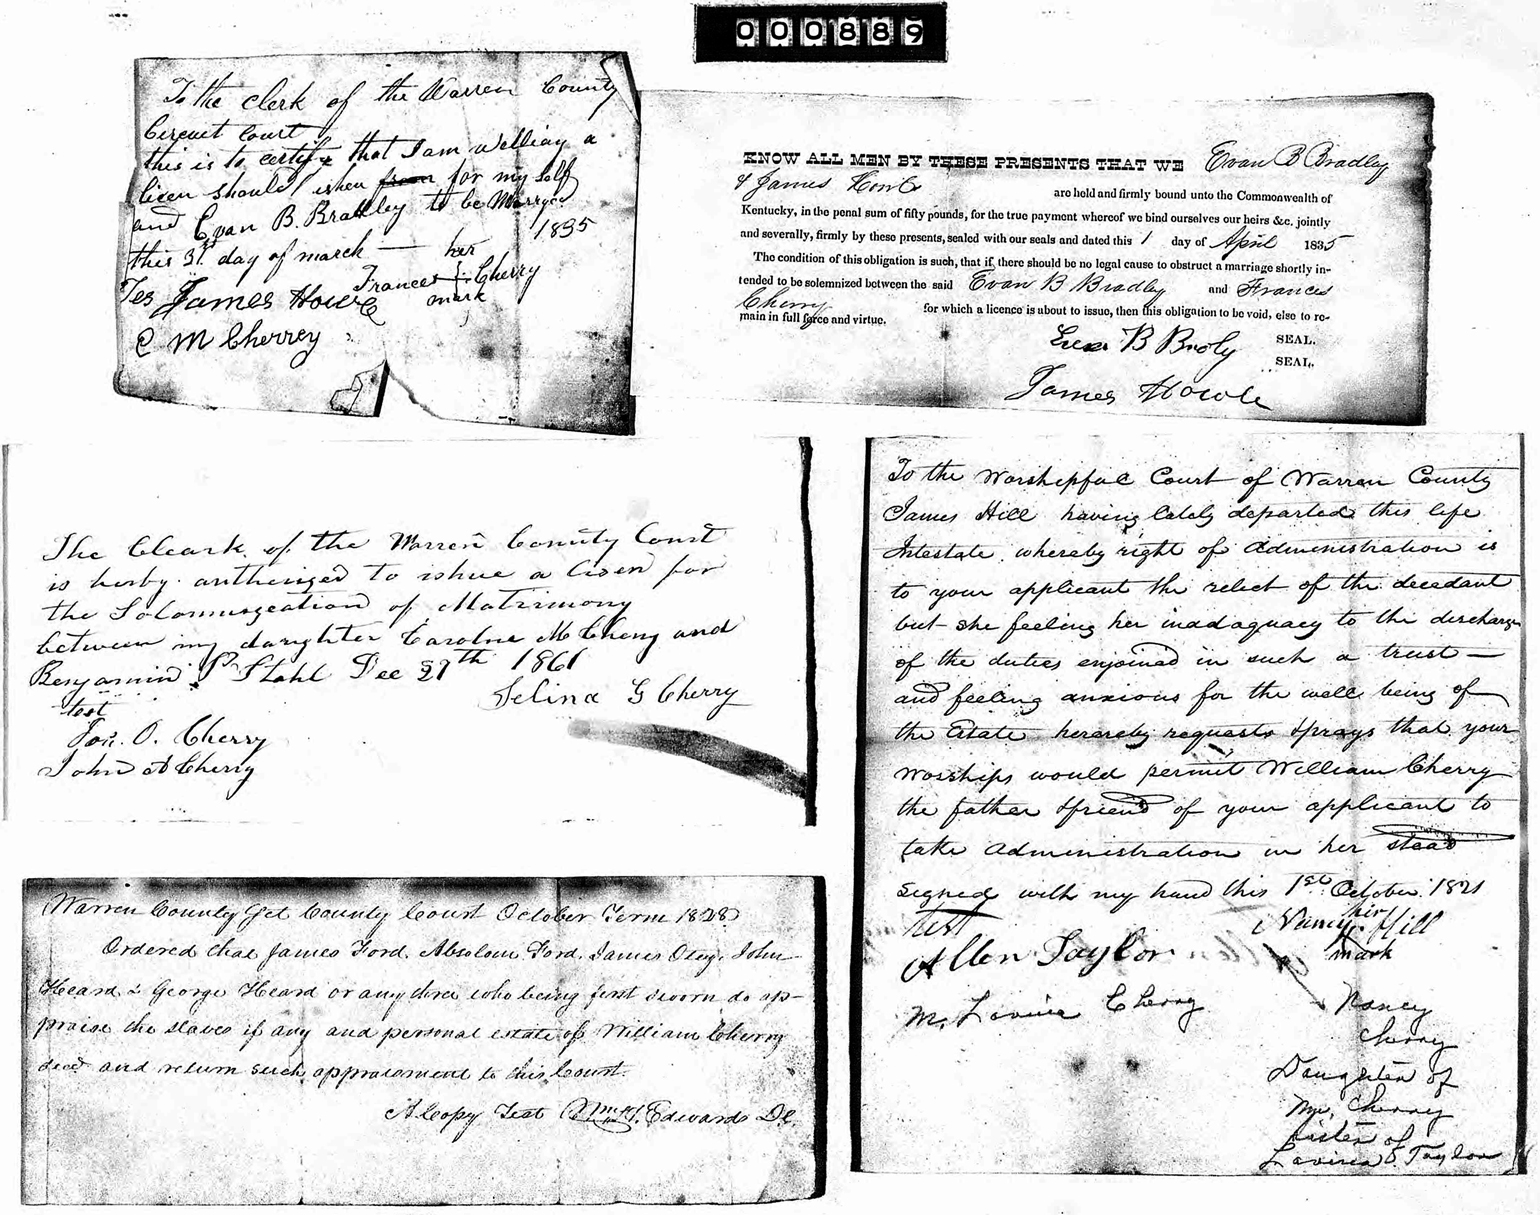 000889
To the clerk of the Warren County
Cercuit Court
this is to certify that I am welliag a
licen should ishew for my self
and Evan B. Bradley to be Marryed
this 31st day of march — 1835
her
Frances Cherry
mark
Tes James Howe
C M Cherrey
KNOW ALL MEN BY THESE PRESENTS THAT WE Evan B Bradley
& James Howle are held and firmly bound unto the Commonwealth of
Kentucky, in the penal sum of fifty pounds, for the true payment whereof we bind ourselves our heirs &c. jointly
and severally, firmly by these presents, sealed with our seals and dated this 1 day of April 1835
The condition of this obligation is such, that if there should be no legal cause to obstruct a marriage shortly in-
tended to be solemnized between the said Evan B Bradley and Frances
Cherry for which a licence is about to issue, then this obligation to be void, else to re-
main in full force and virtue.
B SEAL.
SEAL.
James Howle
The Cleark of the Warren County Court
is herby authorized to ishue a licen for
the Solomnuzeation of Matrimony
between my daughter Carolne M Cherry and
Benjamin P Stahl Dec 29th 1861
Selina G Cherry
test
Jos. O. Cherry
John A Cherry
To the Worshepfull Court of Warren County
James Hill having lately departed this life
Intestate whereby right of Administration is
to your applicant the relect of the decedant
but she feeling her inadaquacy to the discharge
of the duties enjoined in such a trust —
and feeling anxious for the well being of
the Estate hereby requests & prays that your
worships would permit William Cherry
the father & friend of your applicant to
take Administration in her stead
signed with my hand this 1st October 1821
test
her
Nancy Hill
mark
Allen Taylor
M. Lavinia Cherry
Nancy
Cherry
Daughter of
Wm. Cherry
sister of
Lavinia C Taylor
Warren County Sct County Court October Term 1828
Ordered that James Ford, Absolom Ford, James Otey, John
Heard & George Heard or any three who being first sworn do ap-
praise the slaves if any and personal estate of William Cherry
decd and return such appraisement to this Court.
A Copy Test Wm H. Edwards DC.